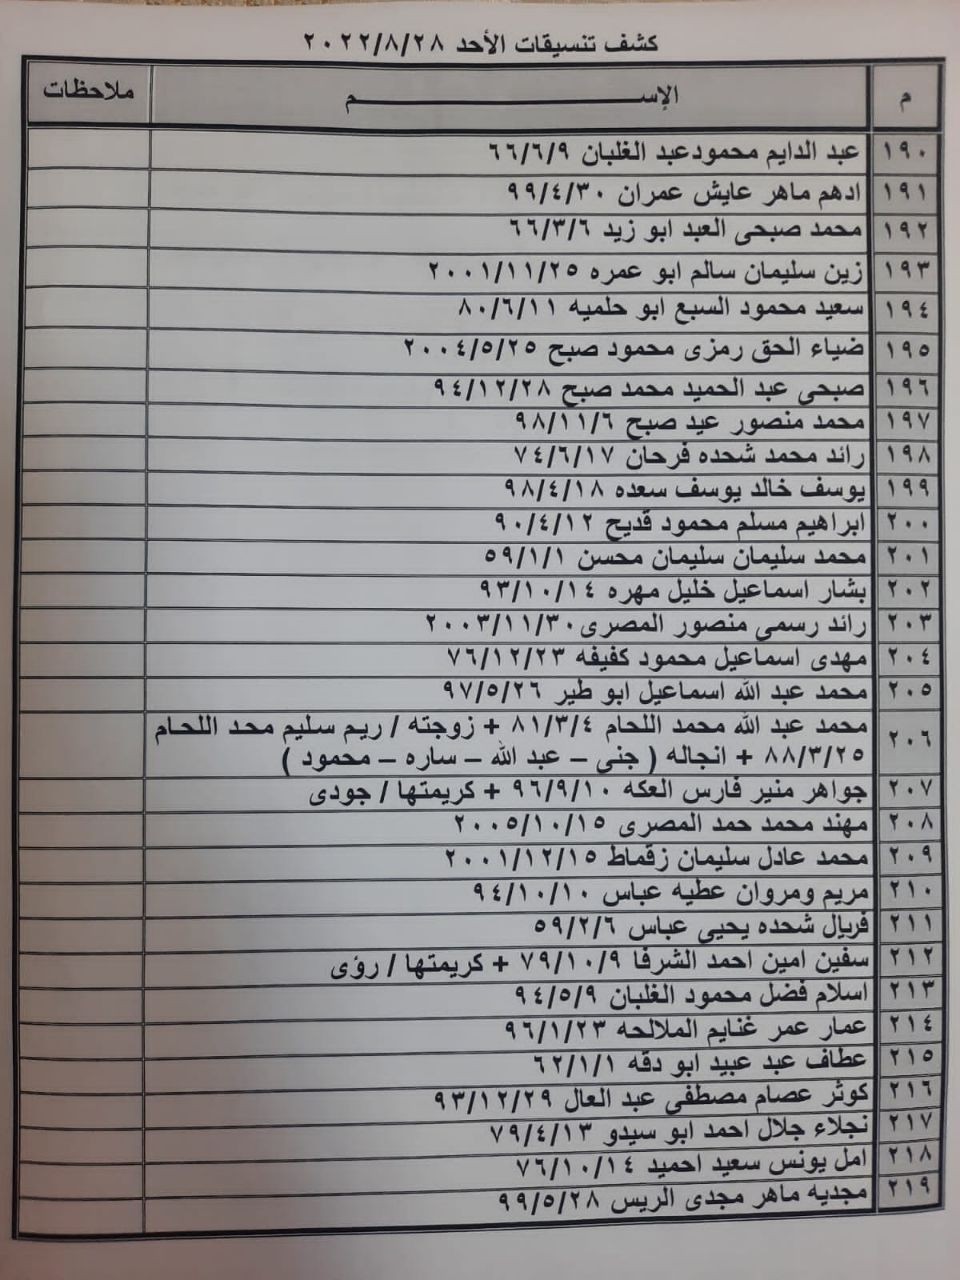 كشف تنسيقات الأحد ٢٠٢٢/٨/٢٨
م الإســـــــــم ملاحظات
١٩٠ عبد الدايم محمودعبد الغلبان ٦٦/٦/٩
١٩١ ادهم ماهر عايش عمران ٩٩/٤/٣٠
١٩٢ محمد صبحى العبد ابو زيد ٦٦/٣/٦
١٩٣ زين سليمان سالم ابو عمره ٢٠٠١/١١/٢٥
١٩٤ سعيد محمود السبع ابو حلميه ٨٠/٦/١١
١٩٥ ضياء الحق رمزى محمود صبح ٢٠٠٤/٥/٢٥
١٩٦ صبحى عبد الحميد محمد صبح ٩٤/١٢/٢٨
١٩٧ محمد منصور عيد صبح ٩٨/١١/٦
١٩٨ رائد محمد شحده فرحان ٧٤/٦/١٧
١٩٩ يوسف خالد يوسف سعده ٩٨/٤/١٨
٢٠٠ ابراهيم مسلم محمود قديح ٩٠/٤/١٢
٢٠١ محمد سليمان سليمان محسن ٥٩/١/١
٢٠٢ بشار اسماعيل خليل مهره ٩٣/١٠/١٤
٢٠٣ رائد رسمى منصور المصرى٢٠٠٣/١١/٣٠
٢٠٤ مهدى اسماعيل محمود كفيفه ٧٦/١٢/٢٣
٢٠٥ محمد عبد الله اسماعيل ابو طير ٩٧/٥/٢٦
٢٠٦ محمد عبد الله محمد اللحام ٨١/٣/٤ + زوجته / ريم سليم محد اللحام
٨٨/٣/٢٥ + انجاله ( جنى – عبد الله – ساره – محمود )
٢٠٧ جواهر منير فارس العكه ٩٦/٩/١٠ + كريمتها / جودى
٢٠٨ مهند محمد حمد المصرى ٢٠٠٥/١٠/١٥
٢٠٩ محمد عادل سليمان زقماط ٢٠٠١/١٢/١٥
٢١٠ مريم ومروان عطيه عباس ٩٤/١٠/١٠
٢١١ فريال شحده يحيى عباس ٥٩/٢/٦
٢١٢ سفين امين احمد الشرفا ٧٩/١٠/٩ + كريمتها / رؤى
٢١٣ اسلام فضل محمود الغلبان ٩٤/٥/٩
٢١٤ عمار عمر غنايم الملالحه ٩٦/١/٢٣
٢١٥ عطاف عبد عبيد ابو دقه ٦٢/١/١
٢١٦ كوثر عصام مصطفى عبد العال ٩٣/١٢/٢٩
٢١٧ نجلاء جلال احمد ابو سيدو ٧٩/٤/١٣
٢١٨ امل يونس سعيد احميد ٧٦/١٠/١٤
٢١٩ مجديه ماهر مجدى الريس ٩٩/٥/٢٨